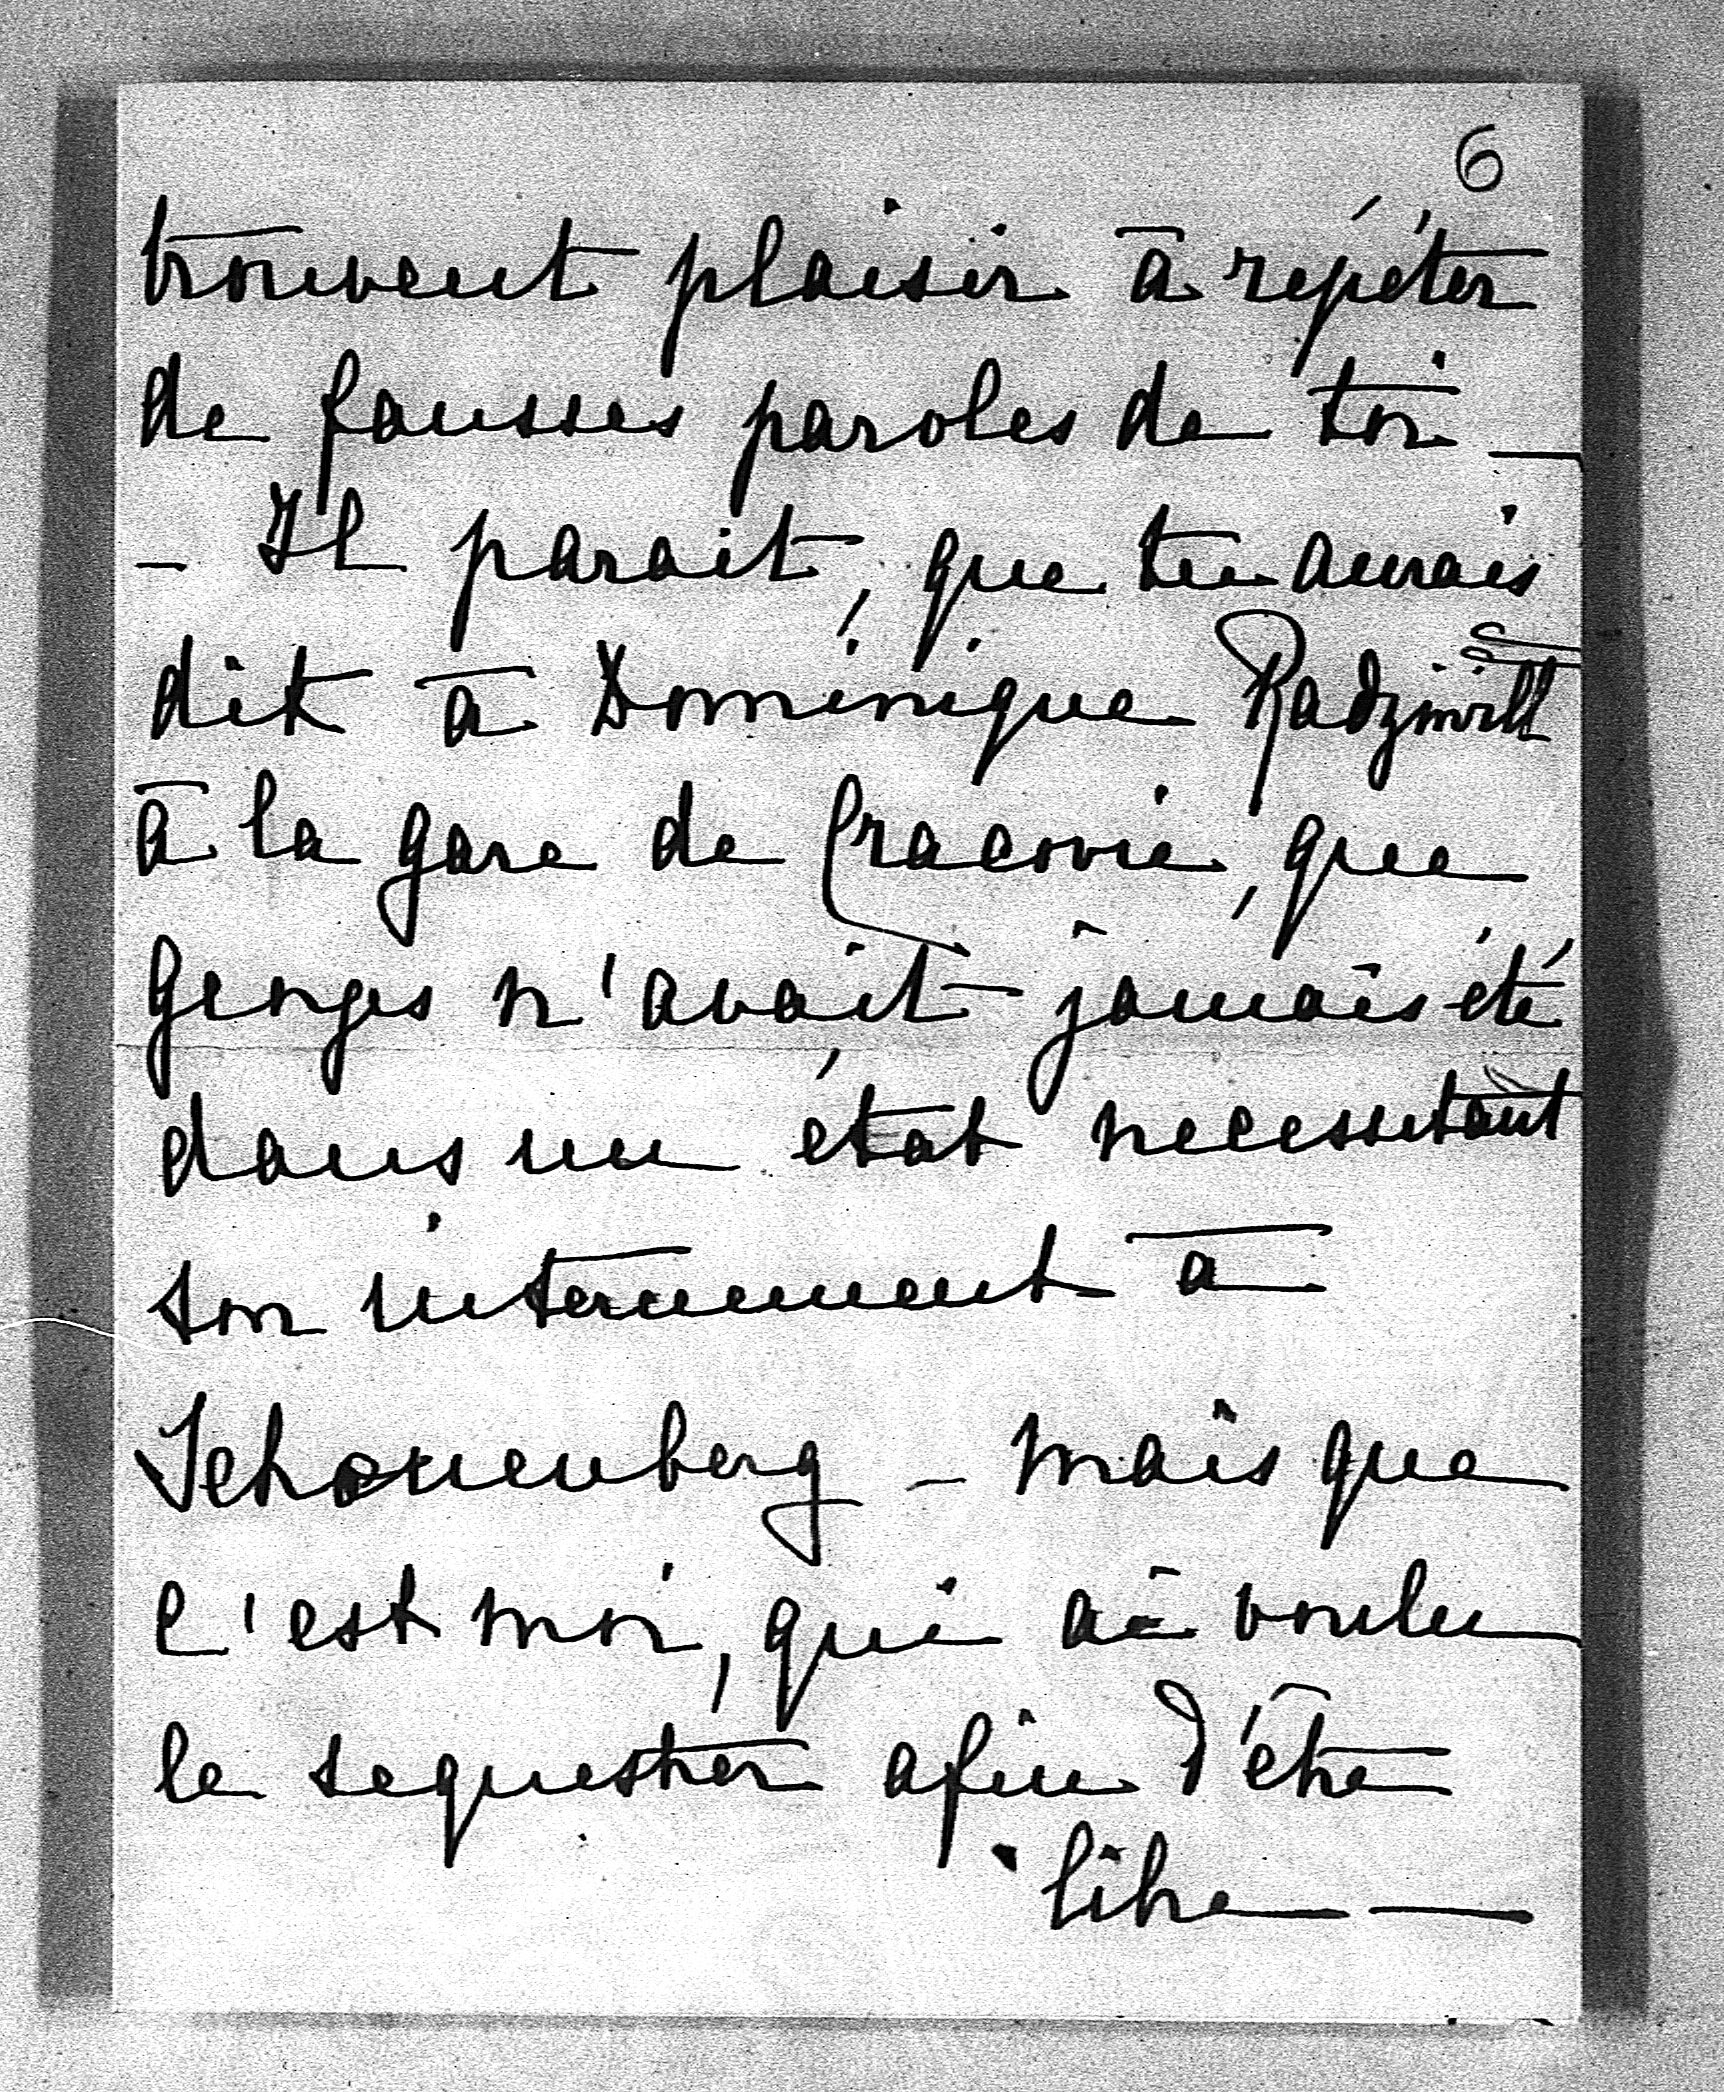 6
trouvent plaisir à répéter
de fausses paroles de toi _
- Il parait, que tu aurais
dit à Dominique Radziwill
à la gare de Cracovie, que
Georges n'avait jamais été
dans un état necessitant
son internement à
Schonenberg - mais que
c'est moi, qui ai voulu
le sequestrer afin d'être
libre —